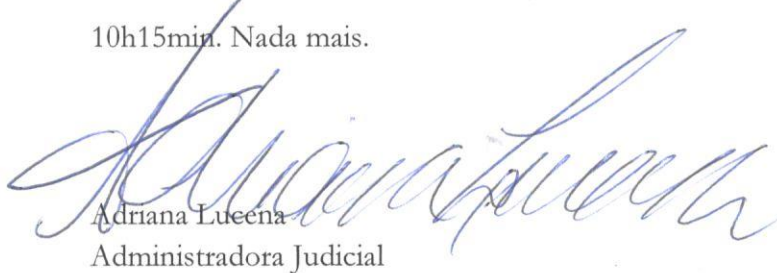 10h15min. Nada mais.
Adriana Lucena
Adriana Lucena
Administradora Judicial